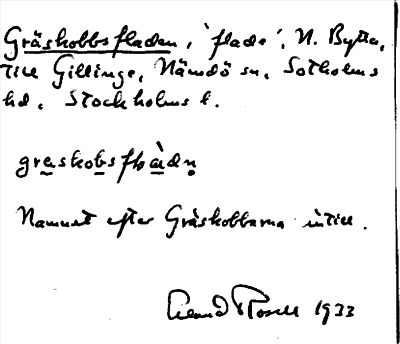 Gräskobbsfladen, 'flade', N. Bytta,
till Gillinge, Nämdö sn, Sotholms
hd, Stockholms l.
graskobsflàdn
Namnet efter Gräskobbarna intill.
1933